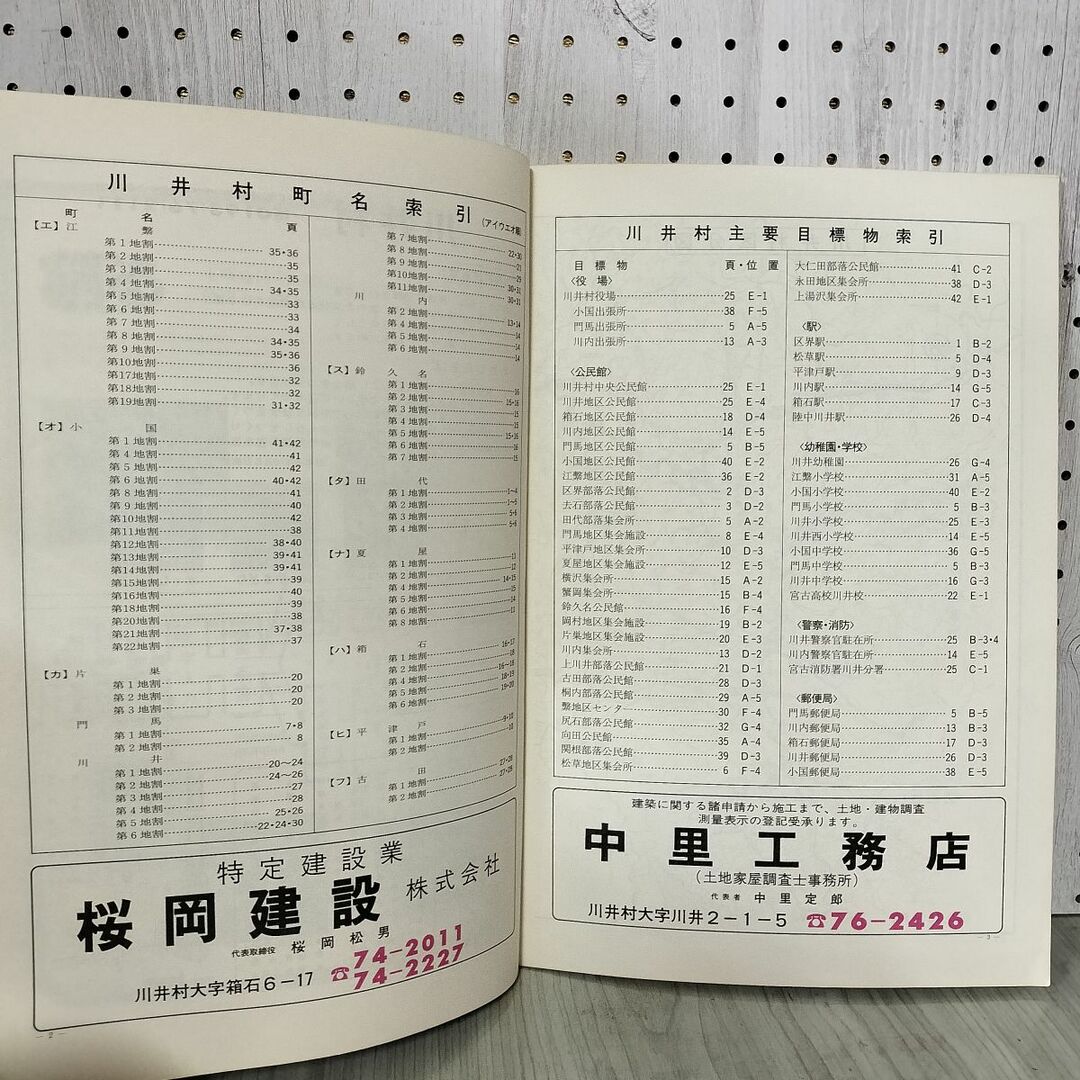 川井村町名索引(アイウエオ順)
町名 頁
【エ】江繋
第1地割 35・36
第2地割 35
第3地割 35
第4地割 34・35
第5地割 33
第6地割 33
第7地割 34
第8地割 34・35
第9地割 35・36
第10地割 36
第17地割 32
第18地割 32
第19地割 31・32
【オ】小国
第1地割 41・42
第4地割 41
第5地割 42
第6地割 40・42
第8地割 41
第9地割 40
第10地割 42
第11地割 38
第12地割 38・40
第13地割 39・41
第14地割 39・41
第15地割 39
第16地割 40
第18地割 39
第20地割 38
第21地割 37・38
第22地割 37
【カ】片巣
第1地割 20
第2地割 20
第3地割 20
門馬
第1地割 7・8
第2地割 8
川井
第1地割 20〜24
第2地割 24〜26
第3地割 27
第4地割 28
第5地割 25・26
第6地割 22・24・30
第7地割 22・30
第8地割 21
第9地割 29
第10地割 30・31
第11地割 30・31
川内
第2地割 13・14
第4地割 14
第5地割 14
第6地割 14
【ス】鈴久名
第1地割 16
第2地割 15・16
第3地割 15
第4地割 15
第5地割 15・16
第6地割 16
第7地割 15
【タ】田代
第1地割 1〜4
第2地割 1〜5
第3地割 5・6
第4地割 5・6
【ナ】夏屋
第1地割 11
第2地割 12
第4地割 14・15
第5地割 15
第6地割 14
第8地割 11
【ハ】箱石
第1地割 16・17
第2地割 18
第4地割 16〜18
第5地割 18・19
第6地割 19・20
【ヒ】平津戸
第1地割 9・10
第2地割 10
【フ】古田
第1地割 27・28
第2地割 27・28
特定建設業
桜岡建設 株式会社
代表取締役 桜岡松男
川井村大字箱石6−17 ☎74−2011
74−2227
−2−
川井村主要目標物索引
目標物 頁・位置
〈役場〉
川井村役場 25 E-1
小国出張所 38 F-5
門馬出張所 5 A-5
川内出張所 13 A-3
〈公民館〉
川井村中央公民館 25 E-1
川井地区公民館 25 E-4
箱石地区公民館 18 D-4
川内地区公民館 14 E-5
門馬地区公民館 5 B-5
小国地区公民館 40 E-2
江繋地区公民館 36 E-2
区界部落公民館 2 D-3
去石部落公民館 3 D-2
田代部落集会所 5 A-2
門馬地区集会施設 8 E-4
平津戸地区集会所 10 D-3
夏屋地区集会施設 12 E-5
横沢集会所 15 A-2
蟹岡集会所 15 B-4
鈴久名公民館 16 F-4
岡村地区集会施設 19 B-2
片巣地区集会施設 20 E-3
川内集会所 13 D-2
上川井部落公民館 21 D-4
古田部落公民館 28 D-3
桐内部落公民館 29 A-5
繋地区センタ 30 F-4
尻石部落公民館 32 G-4
向田公民館 35 A-4
関根部落公民館 39 D-3
松草地区集会所 6 F-4
大仁田部落公民館 41 C-2
永田地区集会所 38 D-3
上湯沢集会所 42 E-1
〈駅〉
区界駅 1 B-2
松草駅 5 D-4
平津戸駅 9 D-3
川内駅 14 G-5
箱石駅 17 C-3
陸中川井駅 26 D-4
〈幼稚園・学校〉
川井幼稚園 26 G-4
江繋小学校 31 A-5
小国小学校 40 E-2
門馬小学校 5 B-3
川井小学校 25 E-3
川井西小学校 14 E-5
小国中学校 36 G-5
門馬中学校 5 B-3
川井中学校 16 G-3
宮古高校川井校 22 E-1
〈警察・消防〉
川井警察官駐在所 25 B-3・4
川内警察官駐在所 14 E-5
宮古消防署川井分署 25 C-1
〈郵便局〉
門馬郵便局 5 B-5
川内郵便局 13 B-3
箱石郵便局 17 D-3
川井郵便局 26 D-3
小国郵便局 38 E-5
建築に関する諸申請から施工まで、土地・建物調査
測量表示の登記受承ります。
中里工務店
(土地家屋調査士事務所)
代表者 中里定郎
川井村大字川井2−1−5 ☎76−2426
−3−